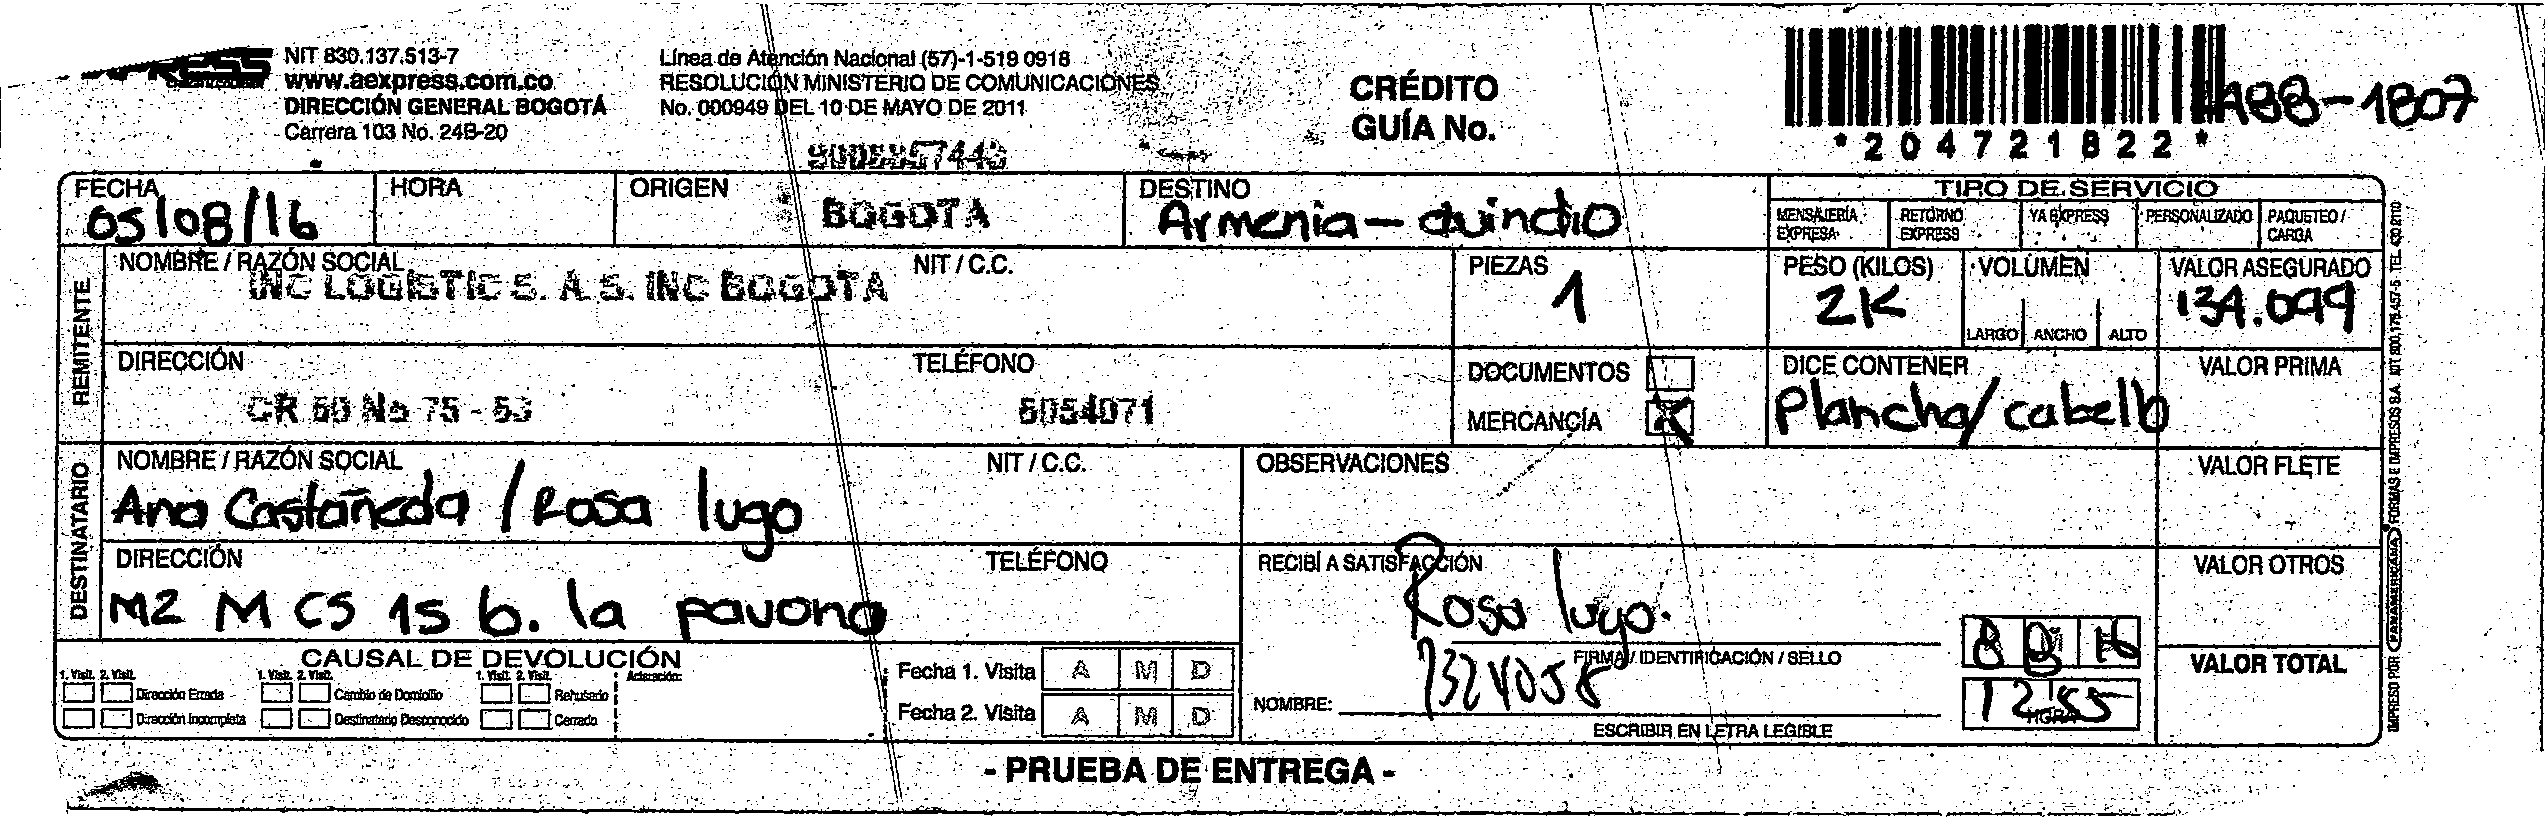 NIT 830.137.513-7
www.aexpress.com.co
DIRECCIÓN GENERAL BOGOTÁ
Carrera 103 No. 24B-20
Línea de Atención Nacional (57)-1-519 0918
RESOLUCIÓN MINISTERIO DE COMUNICACIONES
No. 000949 DEL 10 DE MAYO DE 2011
CRÉDITO
GUÍA No.
*204721822*
A88-1807
FECHA 05/08/16
HORA
ORIGEN BOGOTA
DESTINO Armenia - Quindio
TIPO DE SERVICIO
MENSAJERÍA EXPRESA
RETORNO EXPRESS
YA EXPRESS
PERSONALIZADO
PAQUETEO / CARGA
REMITENTE
NOMBRE / RAZÓN SOCIAL
INC LOGISTIC S. A. S. INC BOGOTA
NIT / C.C.
PIEZAS 1
PESO (KILOS) 2K
VOLUMEN
LARGO ANCHO ALTO
VALOR ASEGURADO 134.099
DIRECCIÓN
CR 50 No 75 - 53
TELÉFONO
6054071
DOCUMENTOS
MERCANCÍA X
DICE CONTENER
Plancha/cabello
VALOR PRIMA
DESTINATARIO
NOMBRE / RAZÓN SOCIAL
Ana Castañeda / Rosa lugo
NIT / C.C.
OBSERVACIONES
VALOR FLETE
DIRECCIÓN
MZ M CS 15 b. la pavona
TELÉFONO
RECIBÍ A SATISFACCIÓN
Rosa lugo.
FIRMA / IDENTIFICACIÓN / SELLO
7324058
NOMBRE:
ESCRIBIR EN LETRA LEGIBLE
8 16
12:55
HORA
VALOR OTROS
VALOR TOTAL
CAUSAL DE DEVOLUCIÓN
1. Visit. 2. Visit.
1. Visit. 2. Visit.
1. Visit. 2. Visit.
Aclaración:
Dirección Errada
Cambio de Domicilio
Rehusado
Dirección Incompleta
Destinatario Desconocido
Cerrado
Fecha 1. Visita A M D
Fecha 2. Visita A M D
- PRUEBA DE ENTREGA -
IMPRESO POR PANAMERICANA FORMAS E IMPRESOS S.A.